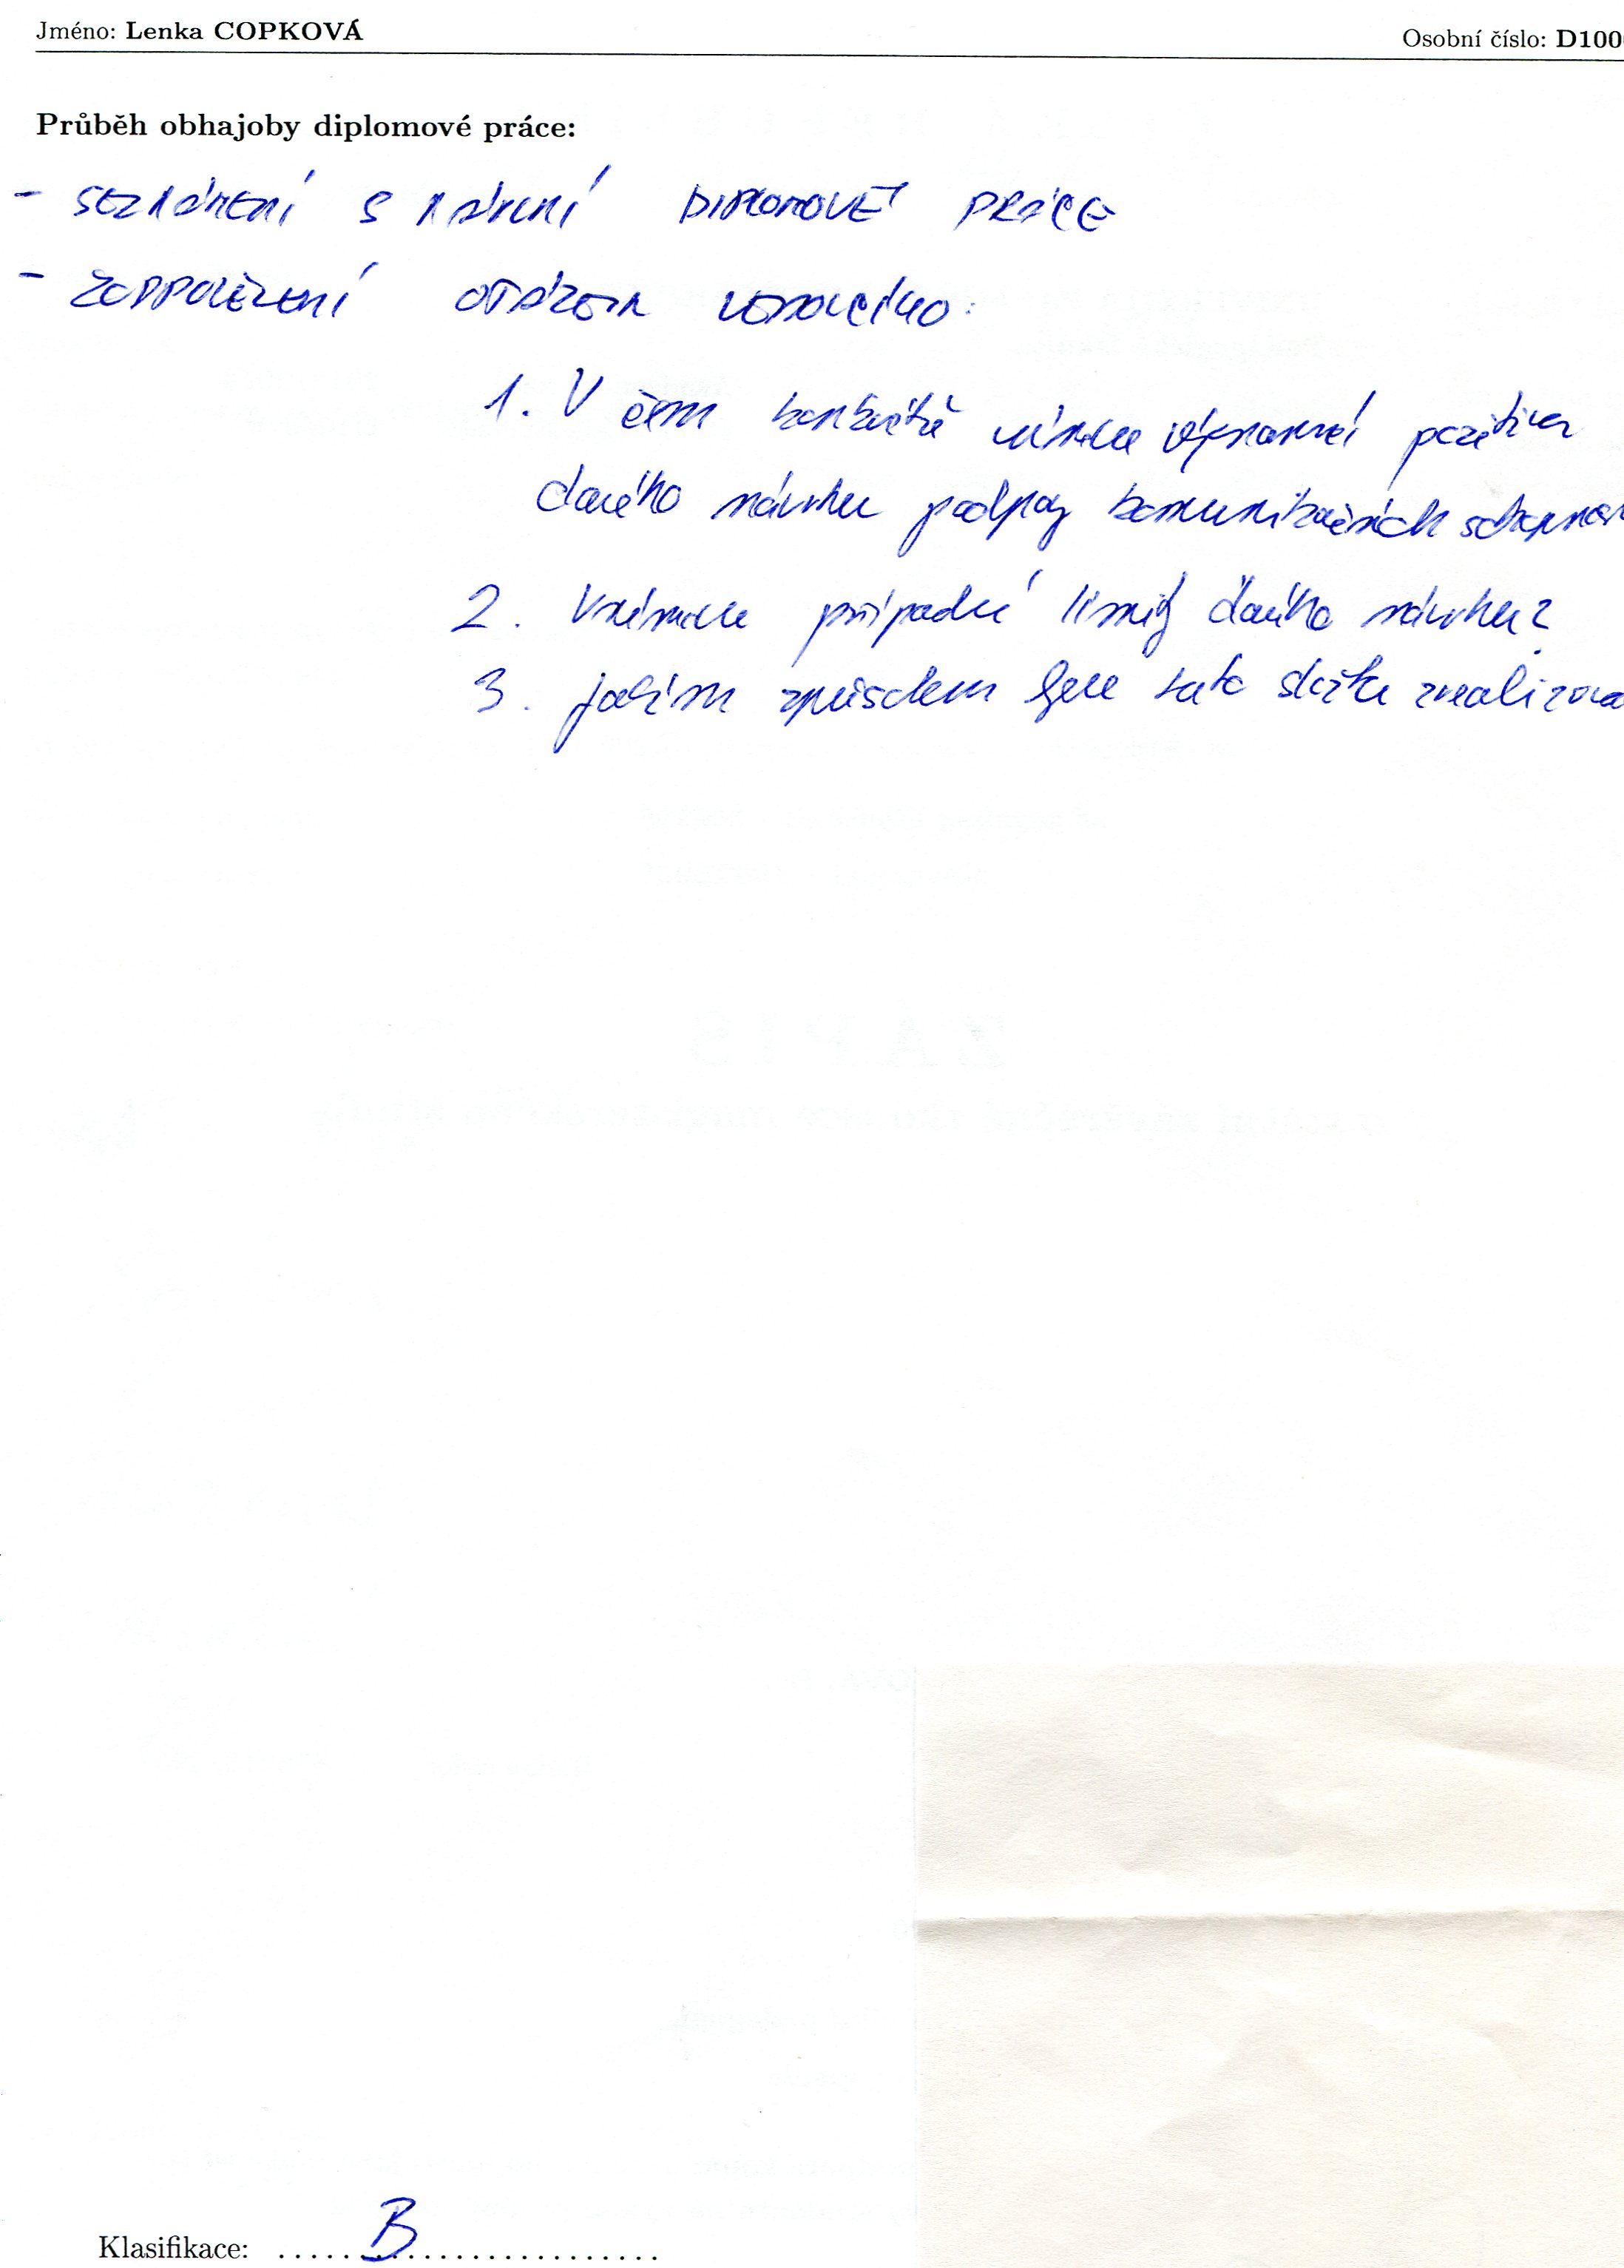 Jméno: Lenka COPKOVÁ Osobní číslo: D100
Průběh obhajoby diplomové práce:
- SEZNÁMENÍ S DIPLOMOVÉ PRÁCE
- ZODPOVĚZENÍ OTÁZEK VEDOUCÍHO:
1. V čem konkrétně vnímáte významná pozitiva
daného návrhu podpory komunikačních schopnost
2. Vnímáte případné limity daného návrhu?
3. Jakým způsobem byla tato složka zrealizova
ZÁPIS
Klasifikace: B